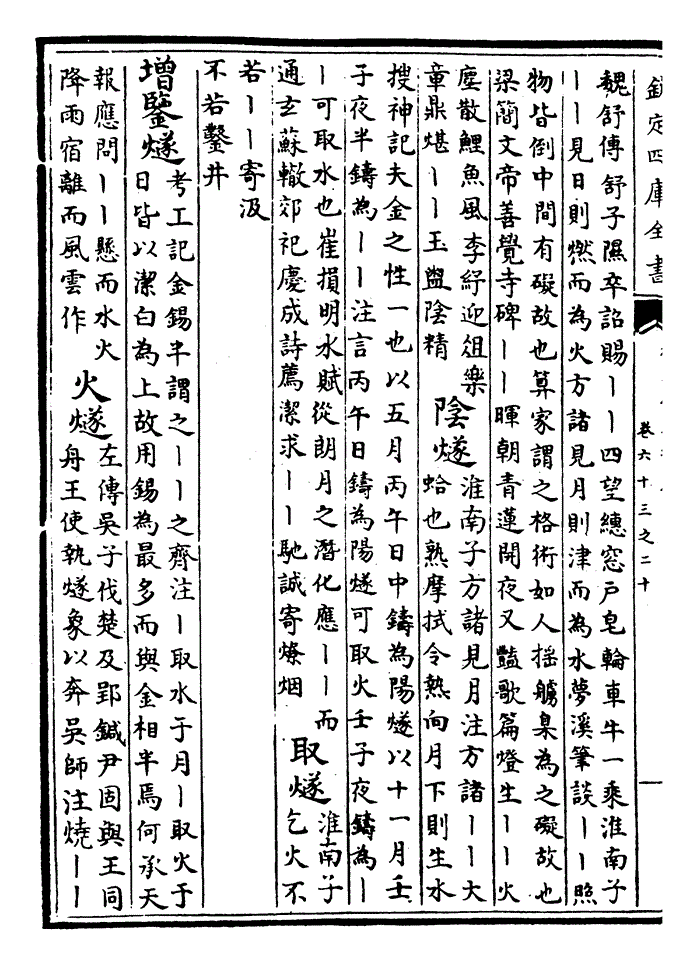 欽定四庫全書
卷六十三之二十
魏舒傳舒子隰卒詔賜丨丨四望繐窓戶皂輪車牛一乘淮南子
丨丨見日則燃而為火方諸見月則津而為水夢溪筆談丨丨照
物皆倒中間有礙故也算家謂之格術如人搖艣臬為之礙故也
梁簡文帝善覺寺碑丨丨暉朝青蓮開夜又豔歌篇燈生丨丨火
塵散鯉魚風李紓迎俎樂
章鼎煁丨丨玉盥陰精
陰燧
淮南子方諸見月注方諸丨丨大
蛤也熟摩拭令熱向月下則生水
搜神記夫金之性一也以五月丙午日中鑄為陽燧以十一月壬
子夜半鑄為丨丨注言丙午日鑄為陽燧可取火壬子夜鑄為丨
丨可取水也崔損明水賦從朗月之潛化應丨丨而
通玄蘇轍郊祀慶成詩薦潔求丨丨馳誠寄燎烟
取燧
淮南子
乞火不
若丨丨寄汲
不若鑿井
增鑒燧
考工記金錫半謂之丨丨之齊注丨取水于月丨取火于
日皆以潔白為上故用錫為最多而與金相半焉何承天
報應問丨丨懸而水火
降雨宿離而風雲作
火燧
左傳吳子伐楚及郢鍼尹固與王同
舟王使執燧象以奔吳師注燒丨丨